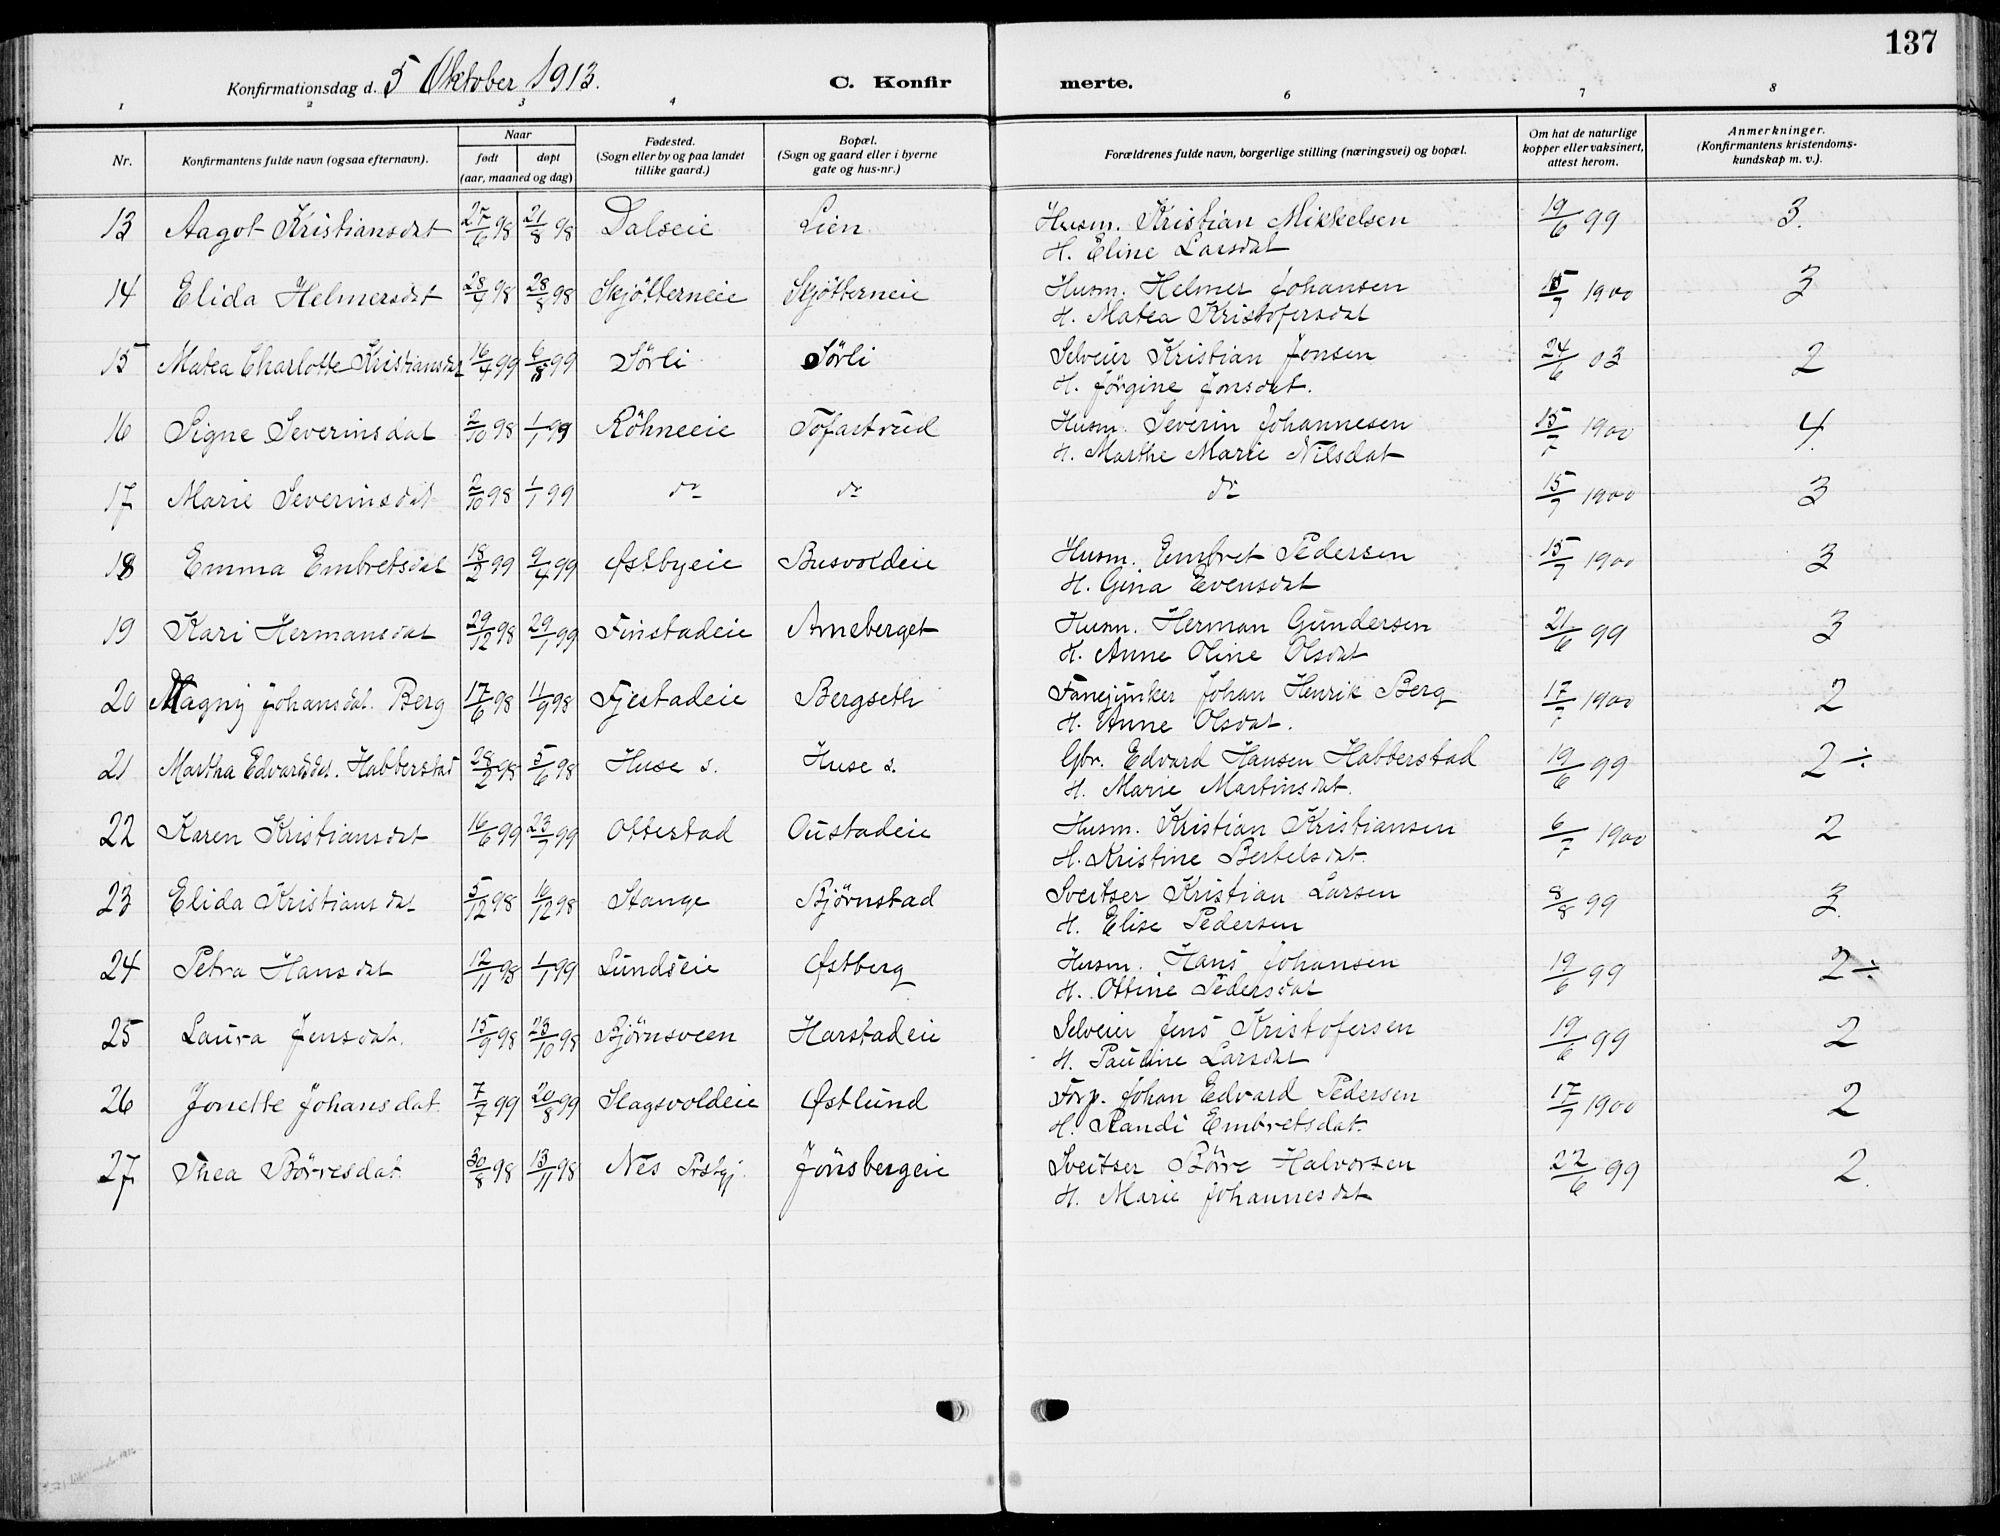 137
Konfirmationsdag d. 5 Oktober 1913. C. Konfirmerte.
1 2 3 4 6 7 8
Nr. Konfirmantens fulde navn (ogsaa efternavn). Naar født døpt (aar, maaned og dag) Fødested. (Sogn eller by og paa landet tillike gaard.) Bopæl. (Sogn og gaard eller i byerne gate og hus-nr.) Forældrenes fulde navn, borgerlige stilling (næringsvei) og bopæl. Om hat de naturlige kopper eller vaksinert, attest herom. Anmerkninger. (Konfirmantens kristendoms-kundskap m. v.).
13 Aagot Kristiansdat 27/6 98 21/8 98 Dalseie Lien Husm. Kristian Mikkelsen 19/6 99 3.
H. Eline Larsdat
14 Elida Helmersdat 28/7 98 28/8 98 Skjötterneie Skjötterneie Husm. Helmer Johansen 15/7 1900 3
H. Matea Kristofersdat
15 Matea Charlotte Kristiansdat 16/7 99 6/8 99 Sörli Sörli Selveier Kristian Jonsen 24/6 03 2
H. Jörgine Jonsdat.
16 Signe Severinsdat 2/10 98 1/1 99 Röhneeie Tofastrud Husm. Severin Johannesen 15/7 1900 4.
H. Marthe Marie Nilsdat
17 Marie Severinsdat 2/10 98 1/1 99 do do do 15/7 1900 3
18 Emma Embretsdat 18/2 99 9/4 99 Østbyeie Busvoldeie Husm. Embret Pedersen 15/7 1900 3
H. Gina Evensdat
19 Kari Hermansdat 29/12 98 29/1 99 Finstadeie Arneberget Husm. Herman Gundersen 21/6 99 3
H. Anne Oline Olsdat
20 Magny Johansdat. Berg 17/6 98 11/9 98 Fjestadeie Bergseth Fanejunker Johan Henrik Berg 17/7 1900 2
H. Anne Olsdat.
21 Martha Edvardsdat. Habberstad 28/2 98 5/6 98 Huse s. Huse s. Gbr. Edvard Hansen Habberstad 19/6 99 2 ÷
H. Marie Martinsdat.
22 Karen Kristiansdat 16/6 99 23/7 99 Ottestad Oustadeie Husm. Kristian Kristiansen 6/7 1900 2
H. Kristine Bertelsdat.
23 Elida Kristiansdat 5/12 98 16/12 98 Stange Bjørnstad Sveitser Kristian Larsen 8/8 99 3.
H. Elise Pedersen
24 Petra Hansdat 12/11 98 1/1 99 Lundseie Østberg Husm. Hans Johansen 19/6 99 2 ÷
H. Ottine Pedersdat
25 Laura Jensdat. 15/9 98 23/10 98 Bjørnsveen Harstadeie Selveier Jens Kristofersen 19/6 99 2
H. Pauline Larsdat
26 Jonette Johansdat 7/7 99 20/8 99 Slagsvoldeie Østlund Forp. Johan Edvard Pedersen 17/7 1900 2
H. Randi Embretsdat.
27 Thea Börresdat. 30/8 98 13/11 98 Nes Prstgj. Jönsbergeie Sveitser Börre Halvorsen 22/6 99 2.
H. Marie Johannesdat